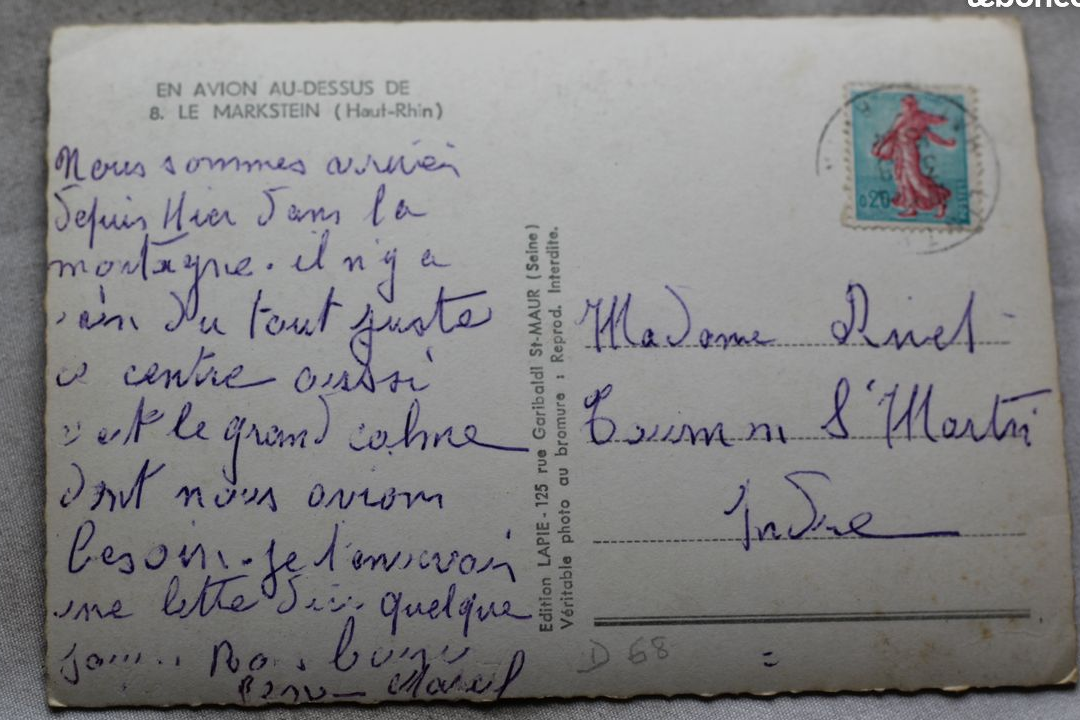 EN AVION AU-DESSUS DE
8. LE MARKSTEIN (Haut-Rhin)
Nous sommes arrivés
depuis Hier dans la
montagne. il n'y a
rien du tout juste
ce centre aussi
c'est le grand calme
dont nous avions
besoin. je t'enverrai
une lettre quelque
Bons
Marcel
Edition LAPIE - 125 rue Garibaldi St-MAUR (Seine)
Véritable photo au bromure : Reprod. Interdite.
0.20
Madame
Tournon St Martin
Indre
D 68